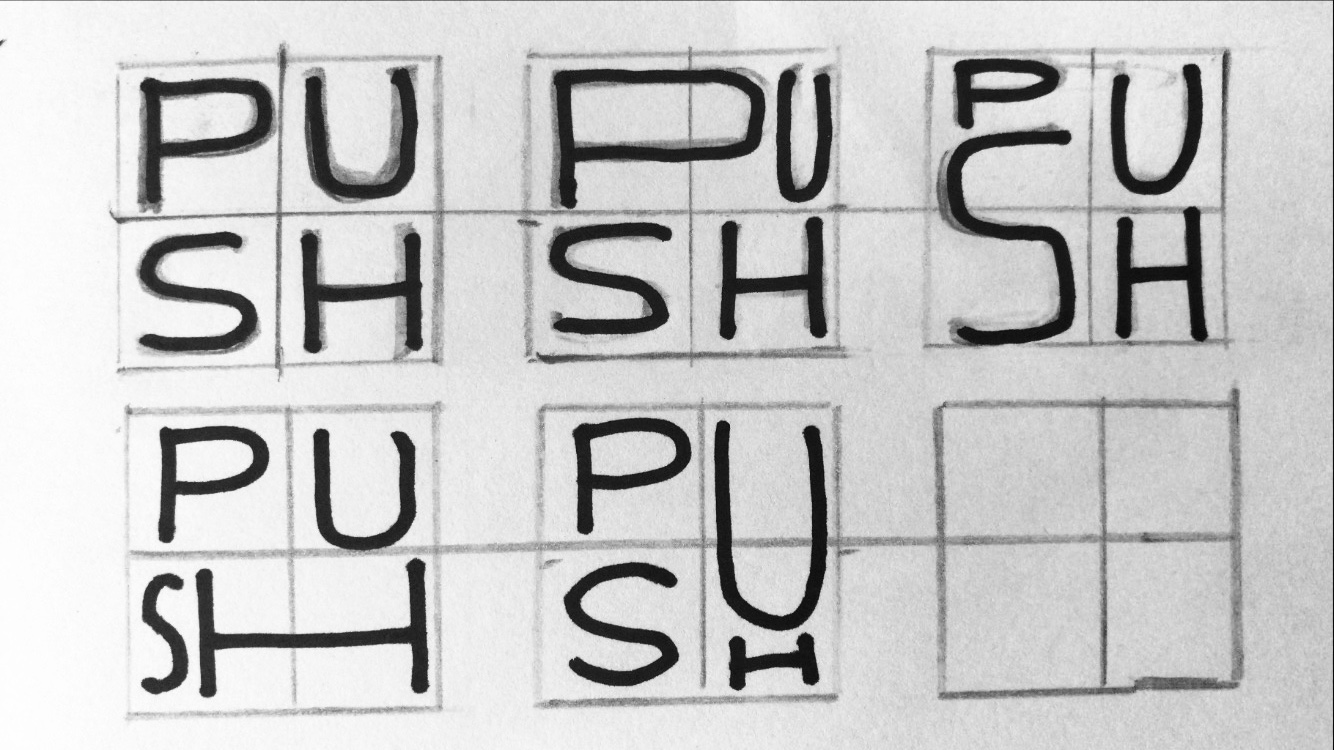 PU
SH
PU
SH
PU
SH
PU
SH
PU
SH